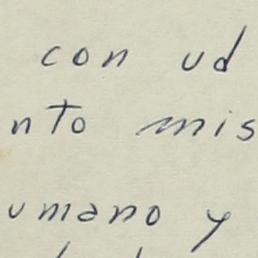 con ud
nto mis
umano y